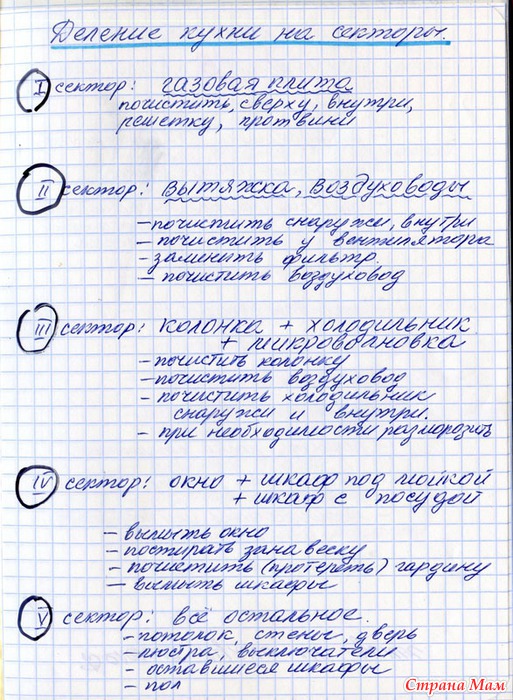 Деление кухни на секторы.
I сектор: газовая плита
почистить, сверху, внутри,
решетку, противни
II сектор: вытяжка, воздуховоды
– почистить снаружи, внутри
– почистить у вентилятора
– заменить фильтр.
– почистить воздуховод
III сектор: колонка + холодильник
+ микроволновка
– почистить колонку
– почистить воздуховод
– почистить холодильник
снаружи и внутри.
– при необходимости разморозить
IV сектор: окно + шкаф под мойкой
+ шкаф с посудой
– вымыть окно
– постирать занавеску
– почистить (протереть) гардину
– вымыть шкафы
V сектор: всё остальное.
– потолок, стены, дверь
– люстра, выключатели
– оставшиеся шкафы
– пол
Страна Мам